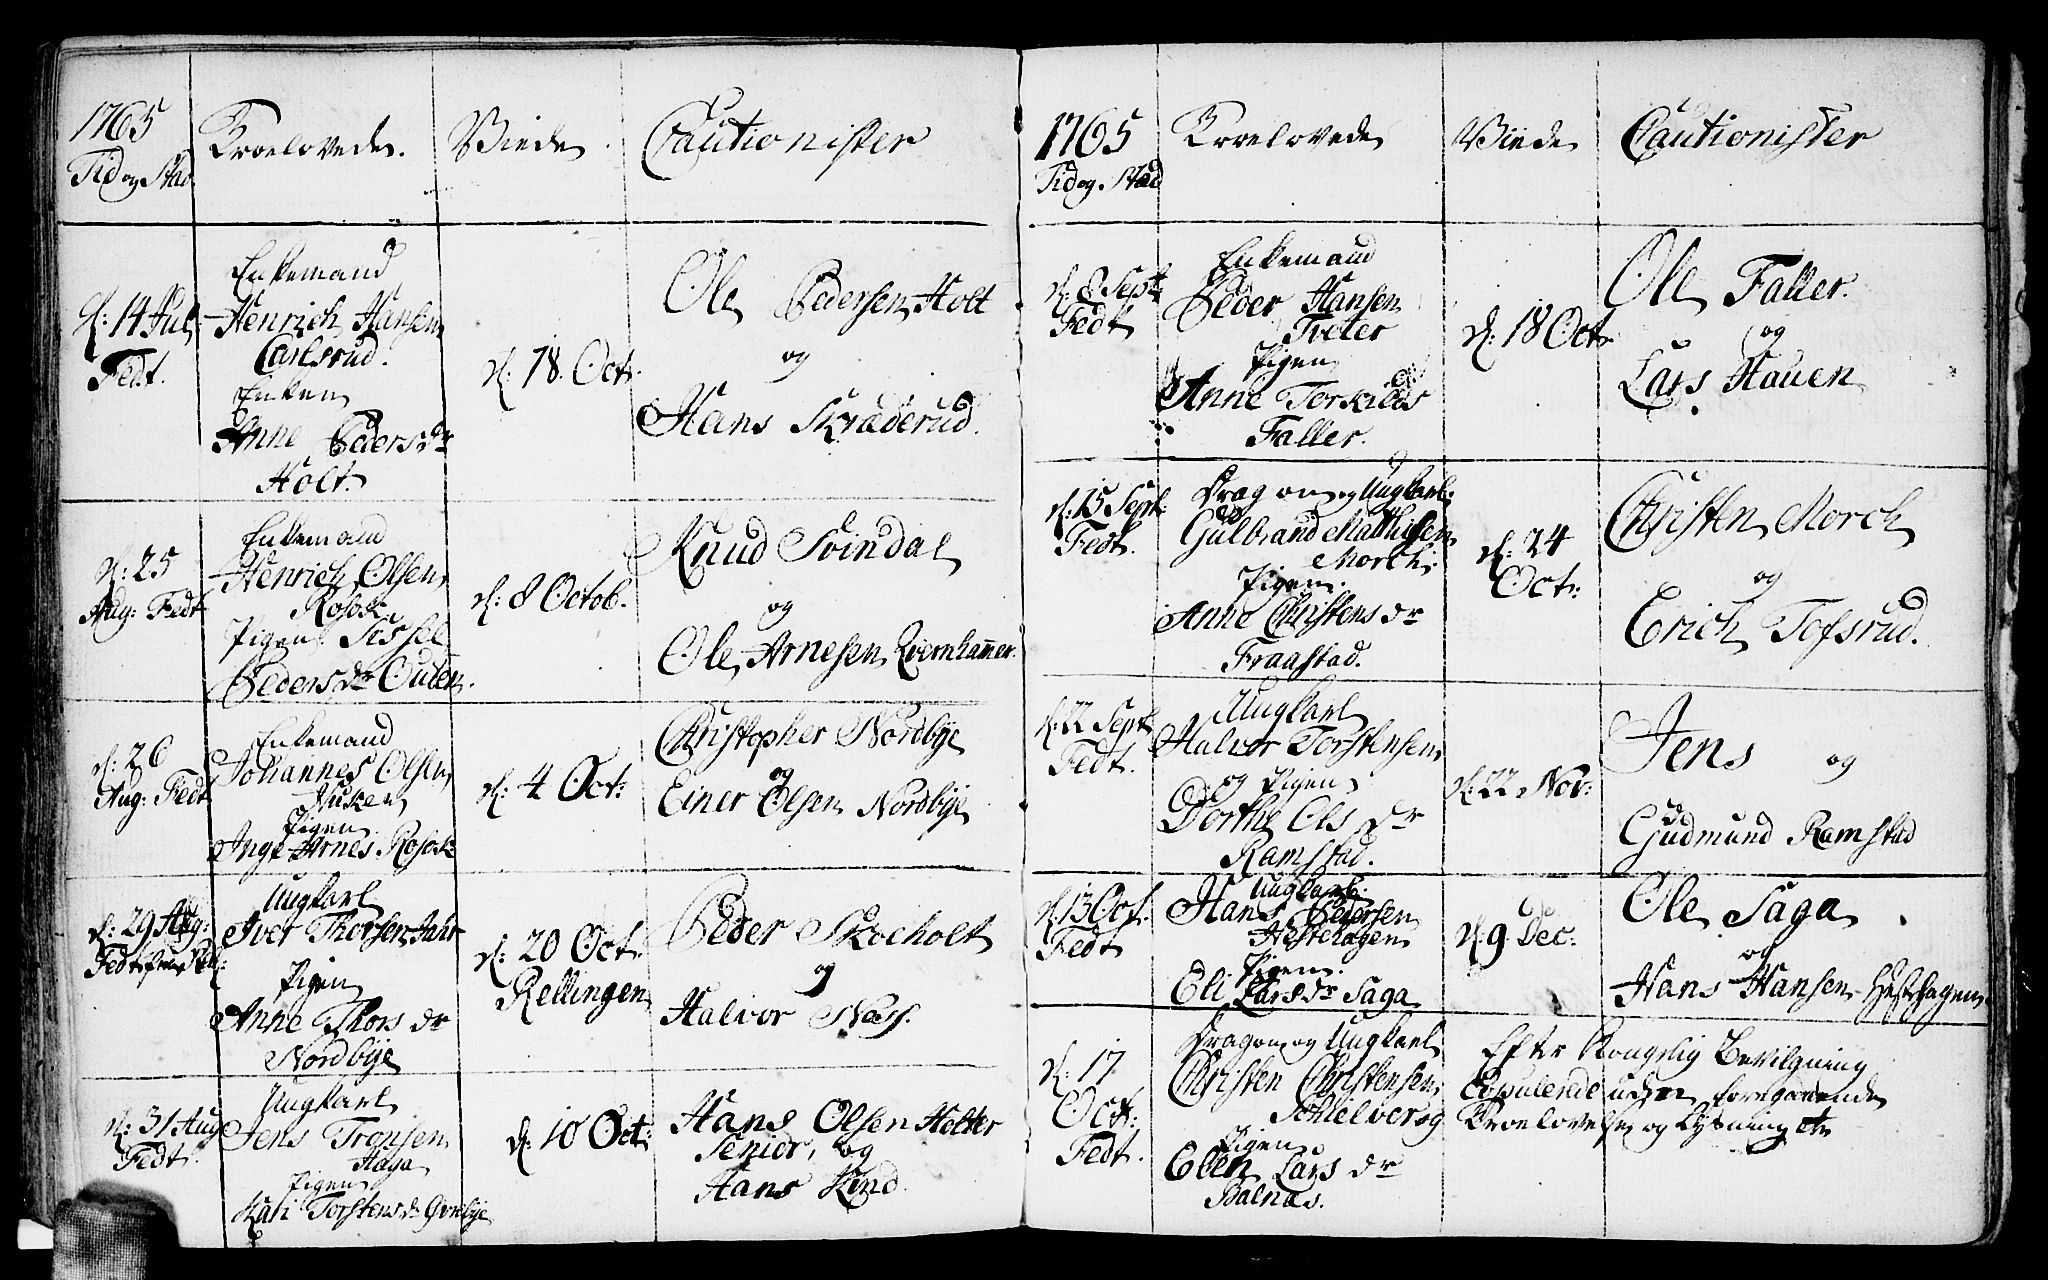 1765
Tid og Stad
Troelovede.
Viede.
Cautionister
d: 14 Jul.
Fedt.
Enkemand
Henrich Hansen
Carlsrud.
Enken
Anne Peders dr
Holt.
d: 18. Oct.
Ole Pedersen Holt
og
Hans Skræderud.
d: 25
Aug: Fedt
Enkemand
Henrich Olsen
Rosok
Pigen Sissel
Peders dr Outen.
d: 8 Octob.
Knud Svindal
og
Ole Arnesen Qvernhamer.
d: 26
Aug: Fedt
Enkemand
Johannes Olsen
Husken
Pigen
Inge Arnes. Rosok
d: 4 Oct:
Christopher Nordbye
og
Einer Olsen Nordbye
d: 29 Aug:
Fedt
Ungkarl
Iver Thorsen Jahr
Pigen
Anne Thors dr
Nordbye
d: 20 Oct.
Rellingen
Peder Skocholt
og
Halvor Næss.
d: 31 Aug
Fedt.
Ungkarl
Jens Tronsen
Haga
Pigen
Kari Torstens d. Gvrebye
d: 10 Oct:
Hans Olsen Holter
Senior, og
Hans Kind.
1765
Tid og Stad
Troelovede
Viede
Cautionister
d: 8 Sept.
Fedt
Enkemand
Peder Hansen
Tveter
Pigen
Anne Torkilds d:
Faller.
d: 18 Oct
Ole Faller.
og
Lars Hauen
d: 15 Sept.
Fedt.
Dragon og Ungkarl.
Gulbrand Matthisen
Morch.
Pigen.
Anne Christens dr
Fraastad.
d: 24
Oct:
Christen Morch
og
Erich Tofsrud.
d: 22 Sept.
Fedt.
Ungkarl
Halvor Torstensen
og Pigen
Dorthe Ols dr
Ramstad.
d: 22 Nov:
Jens og
Gudmund Ramstad
d. 13 Oct.
Fedt
Ungkarl.
Hans Pedersen
Hestehagen
Pigen.
Eli Lars dr Saga
d. 9. Dec:
Ole Saga
og
Hans Hansen Hestehagen
d: 17
Oct:
Fedt.
Dragon og Ungkarl
Christen Christensen
Schielversg
Pigen
Elen Lars dr
Balnas.
Efter Kongelig Bevilgning
Copulerede uden foregaaende
Troelovelse og Lysning etc